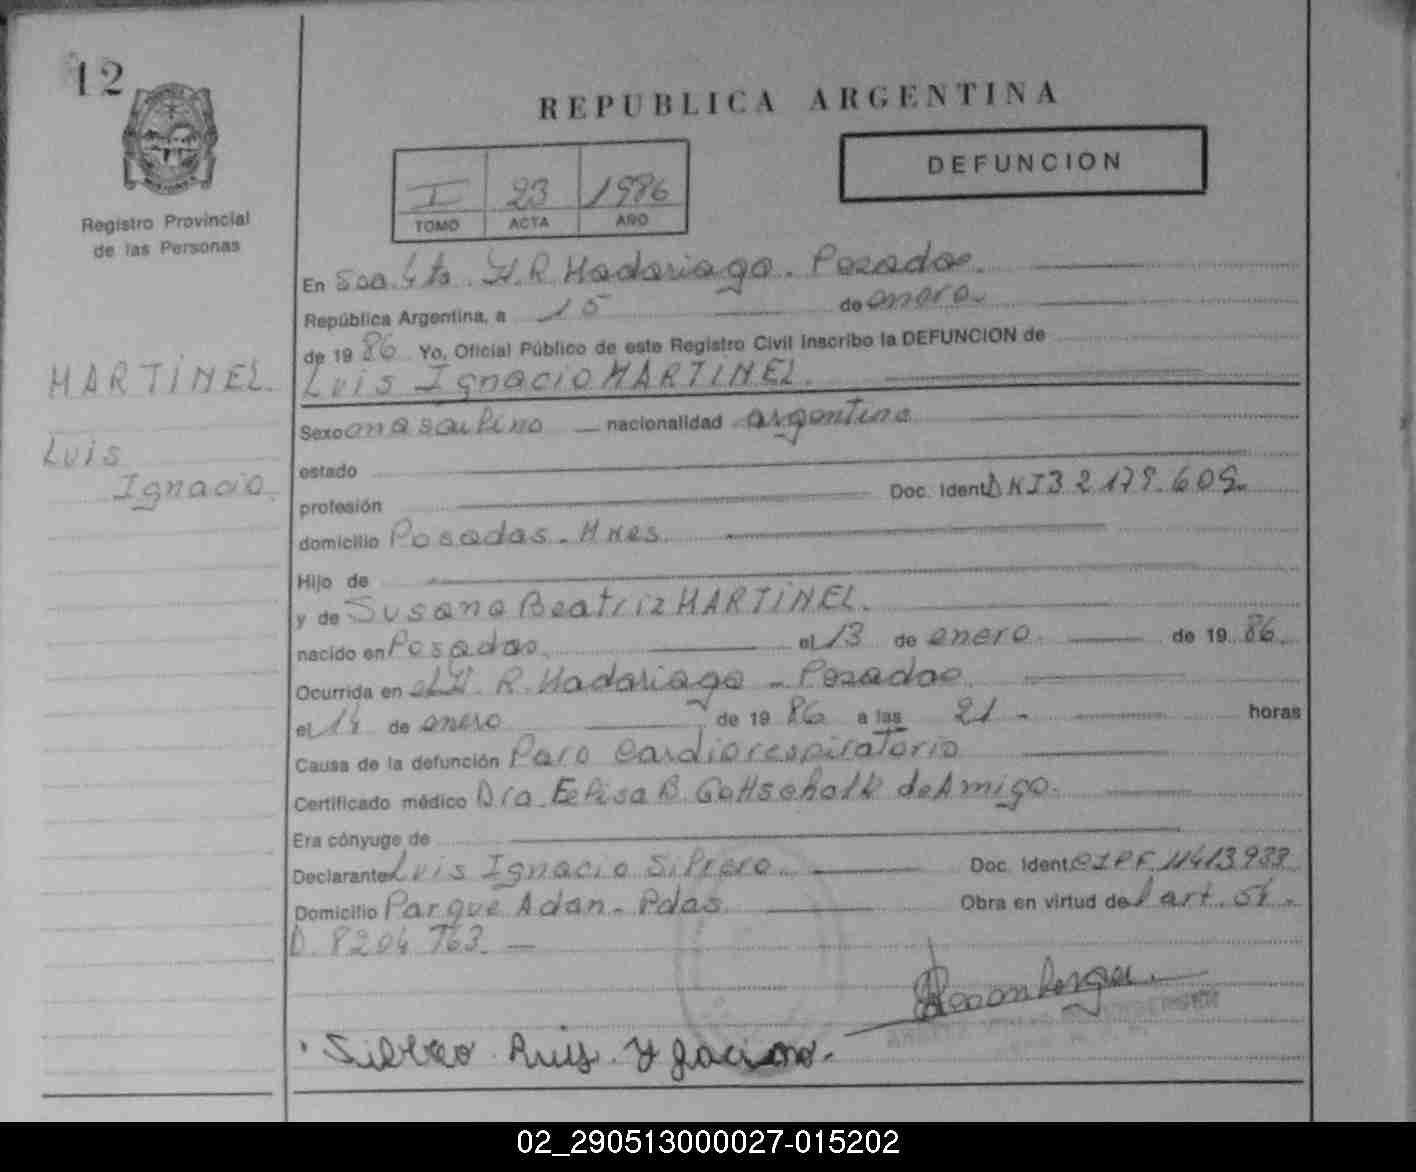 12
REPUBLICA ARGENTINA
DEFUNCION
I 23 1986
TOMO ACTA AÑO
Registro Provincial
de las Personas
En Scca. 4ta. H. R. Madariaga. Posadas.
República Argentina, a 15 de enero.
de 19 86 Yo, Oficial Público de este Registro Civil Inscribo la DEFUNCION de
MARTINEL. Luis Ignacio MARTINEL.
Luis
Ignacio.
Sexo masculino nacionalidad argentina
estado
profesión Doc. Ident. DNI 32.179.609.
domicilio Posadas - Mnes.
Hijo de
y de Susana Beatriz MARTINEL.
nacido en Posadas. el 13 de enero. de 19 86.
Ocurrida en el H. R. Madariaga - Posadas.
el 14 de enero de 19 86 a las 21 - horas
Causa de la defunción Paro Cardiorespiratorio
Certificado médico Dra. Felisa B. Gottschalk de Amigo.
Era cónyuge de
Declarante Luis Ignacio Silvero. Doc. Ident. CIPF. 11413933
Domicilio Parque Adan - Pdas. Obra en virtud del art. 54.
D. 8204/63.
Silveo Ruis Ygacino.
02_290513000027-015202